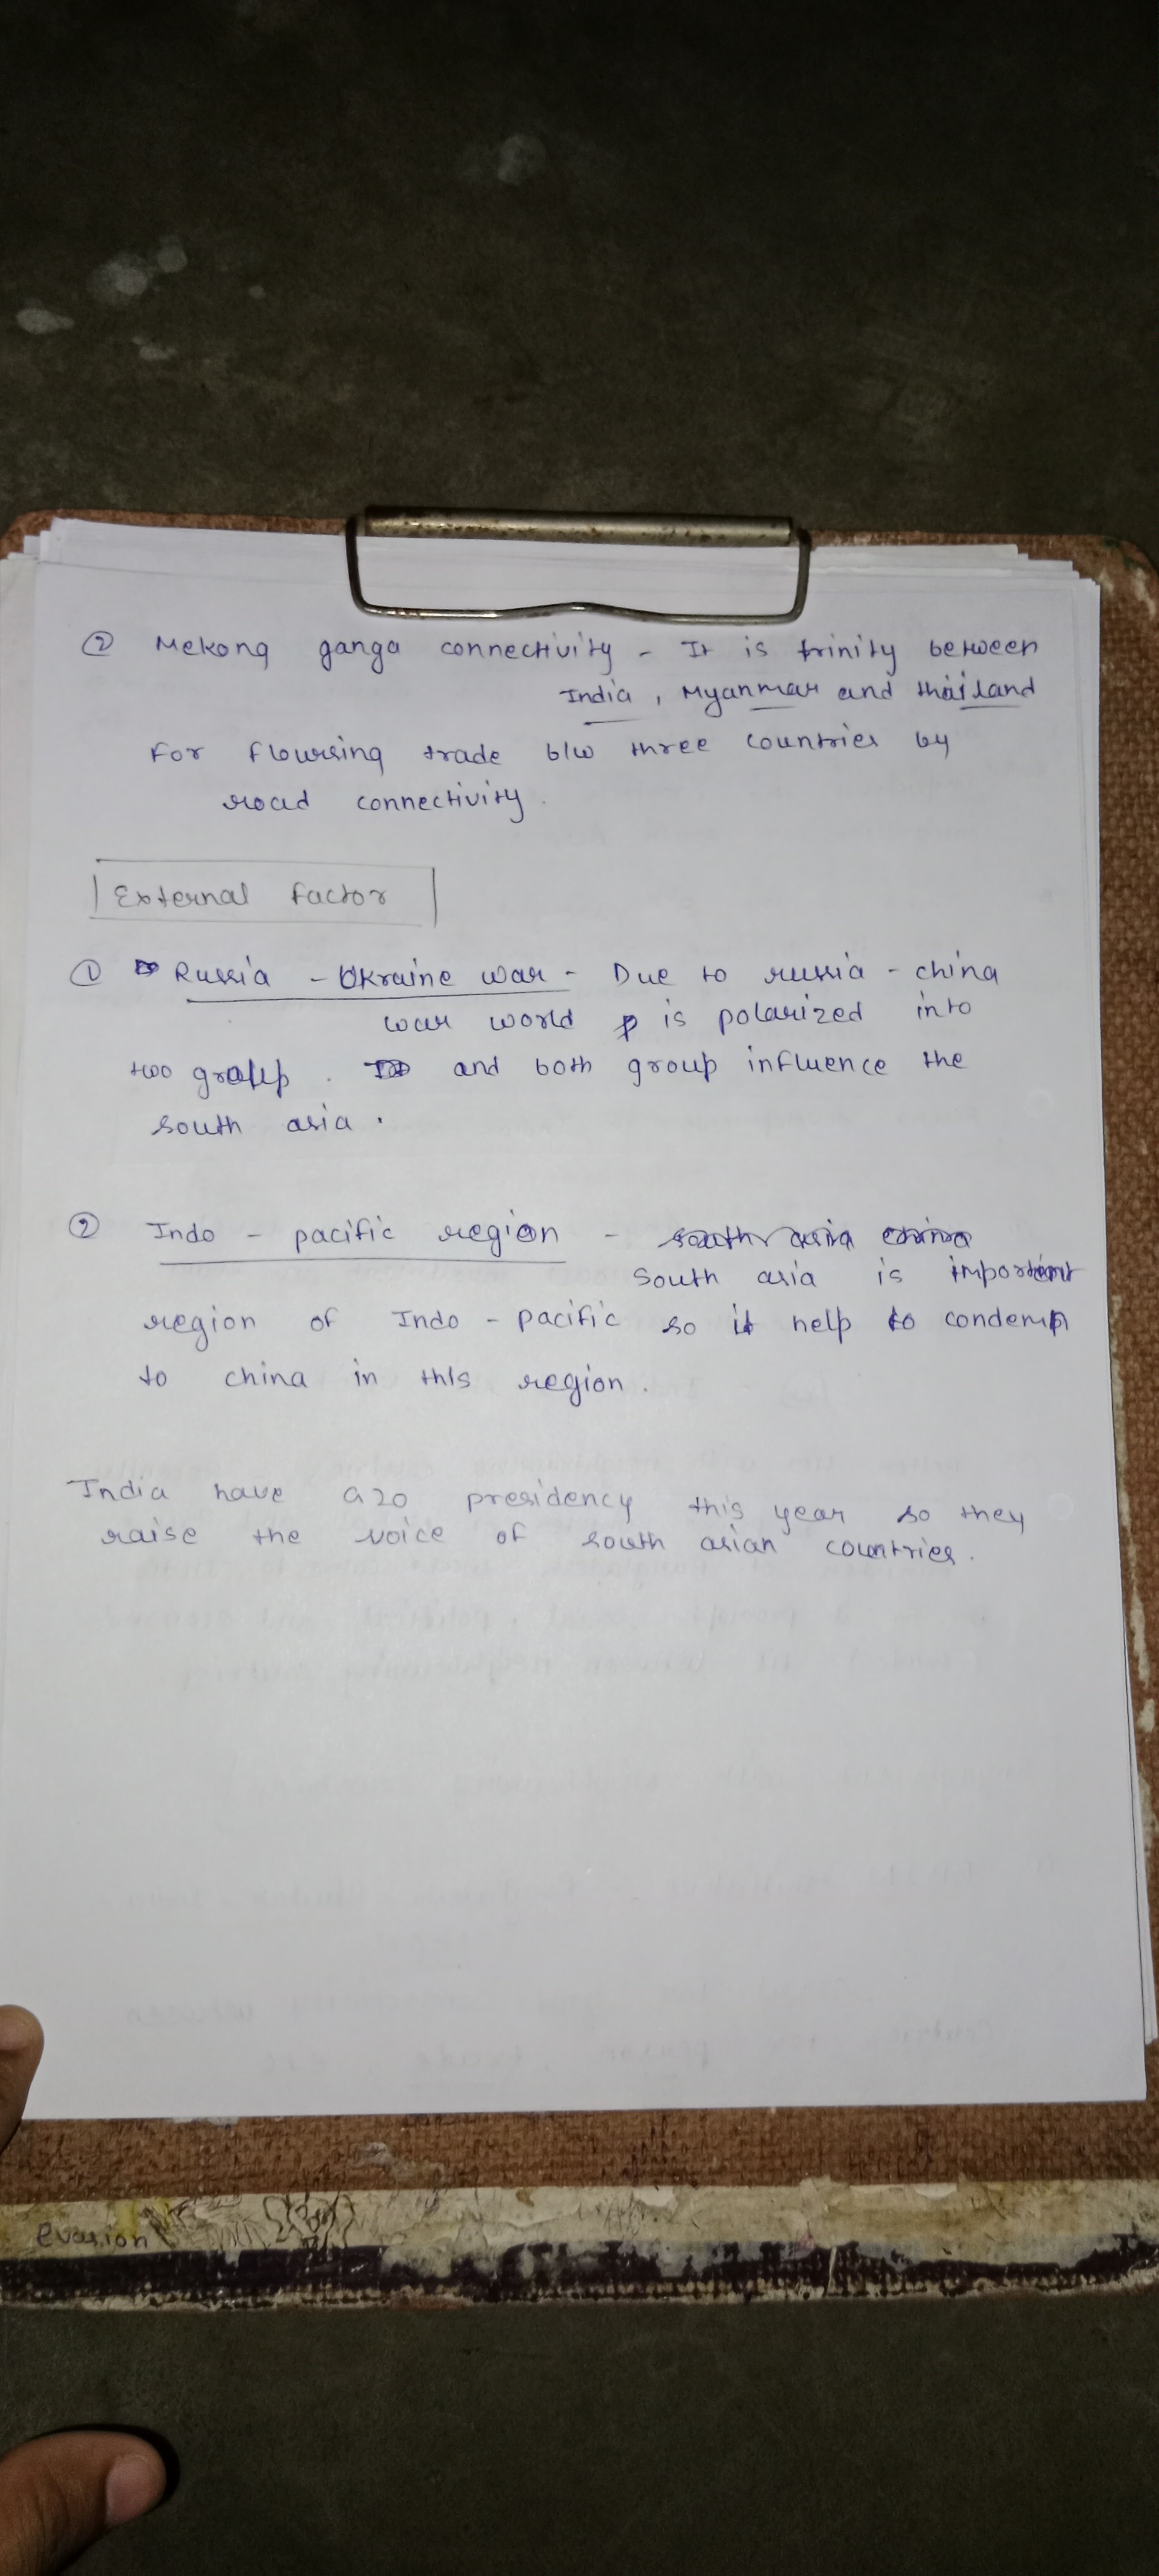 ② Mekong ganga connectivity - It is trinity between
India, Myanmar and thailand
For floursing trade b/w three countries by
road connectivity.
External factor
① Russia - Ukraine war - Due to russia - china
war world is polarized into
two group. and both group influence the
south asia.
② Indo - pacific region - south asia china
south asia is important
region of Indo - pacific so it help to condemn
to china in this region.
India have G20 presidency this year so they
raise the voice of south asian countries.
evasion